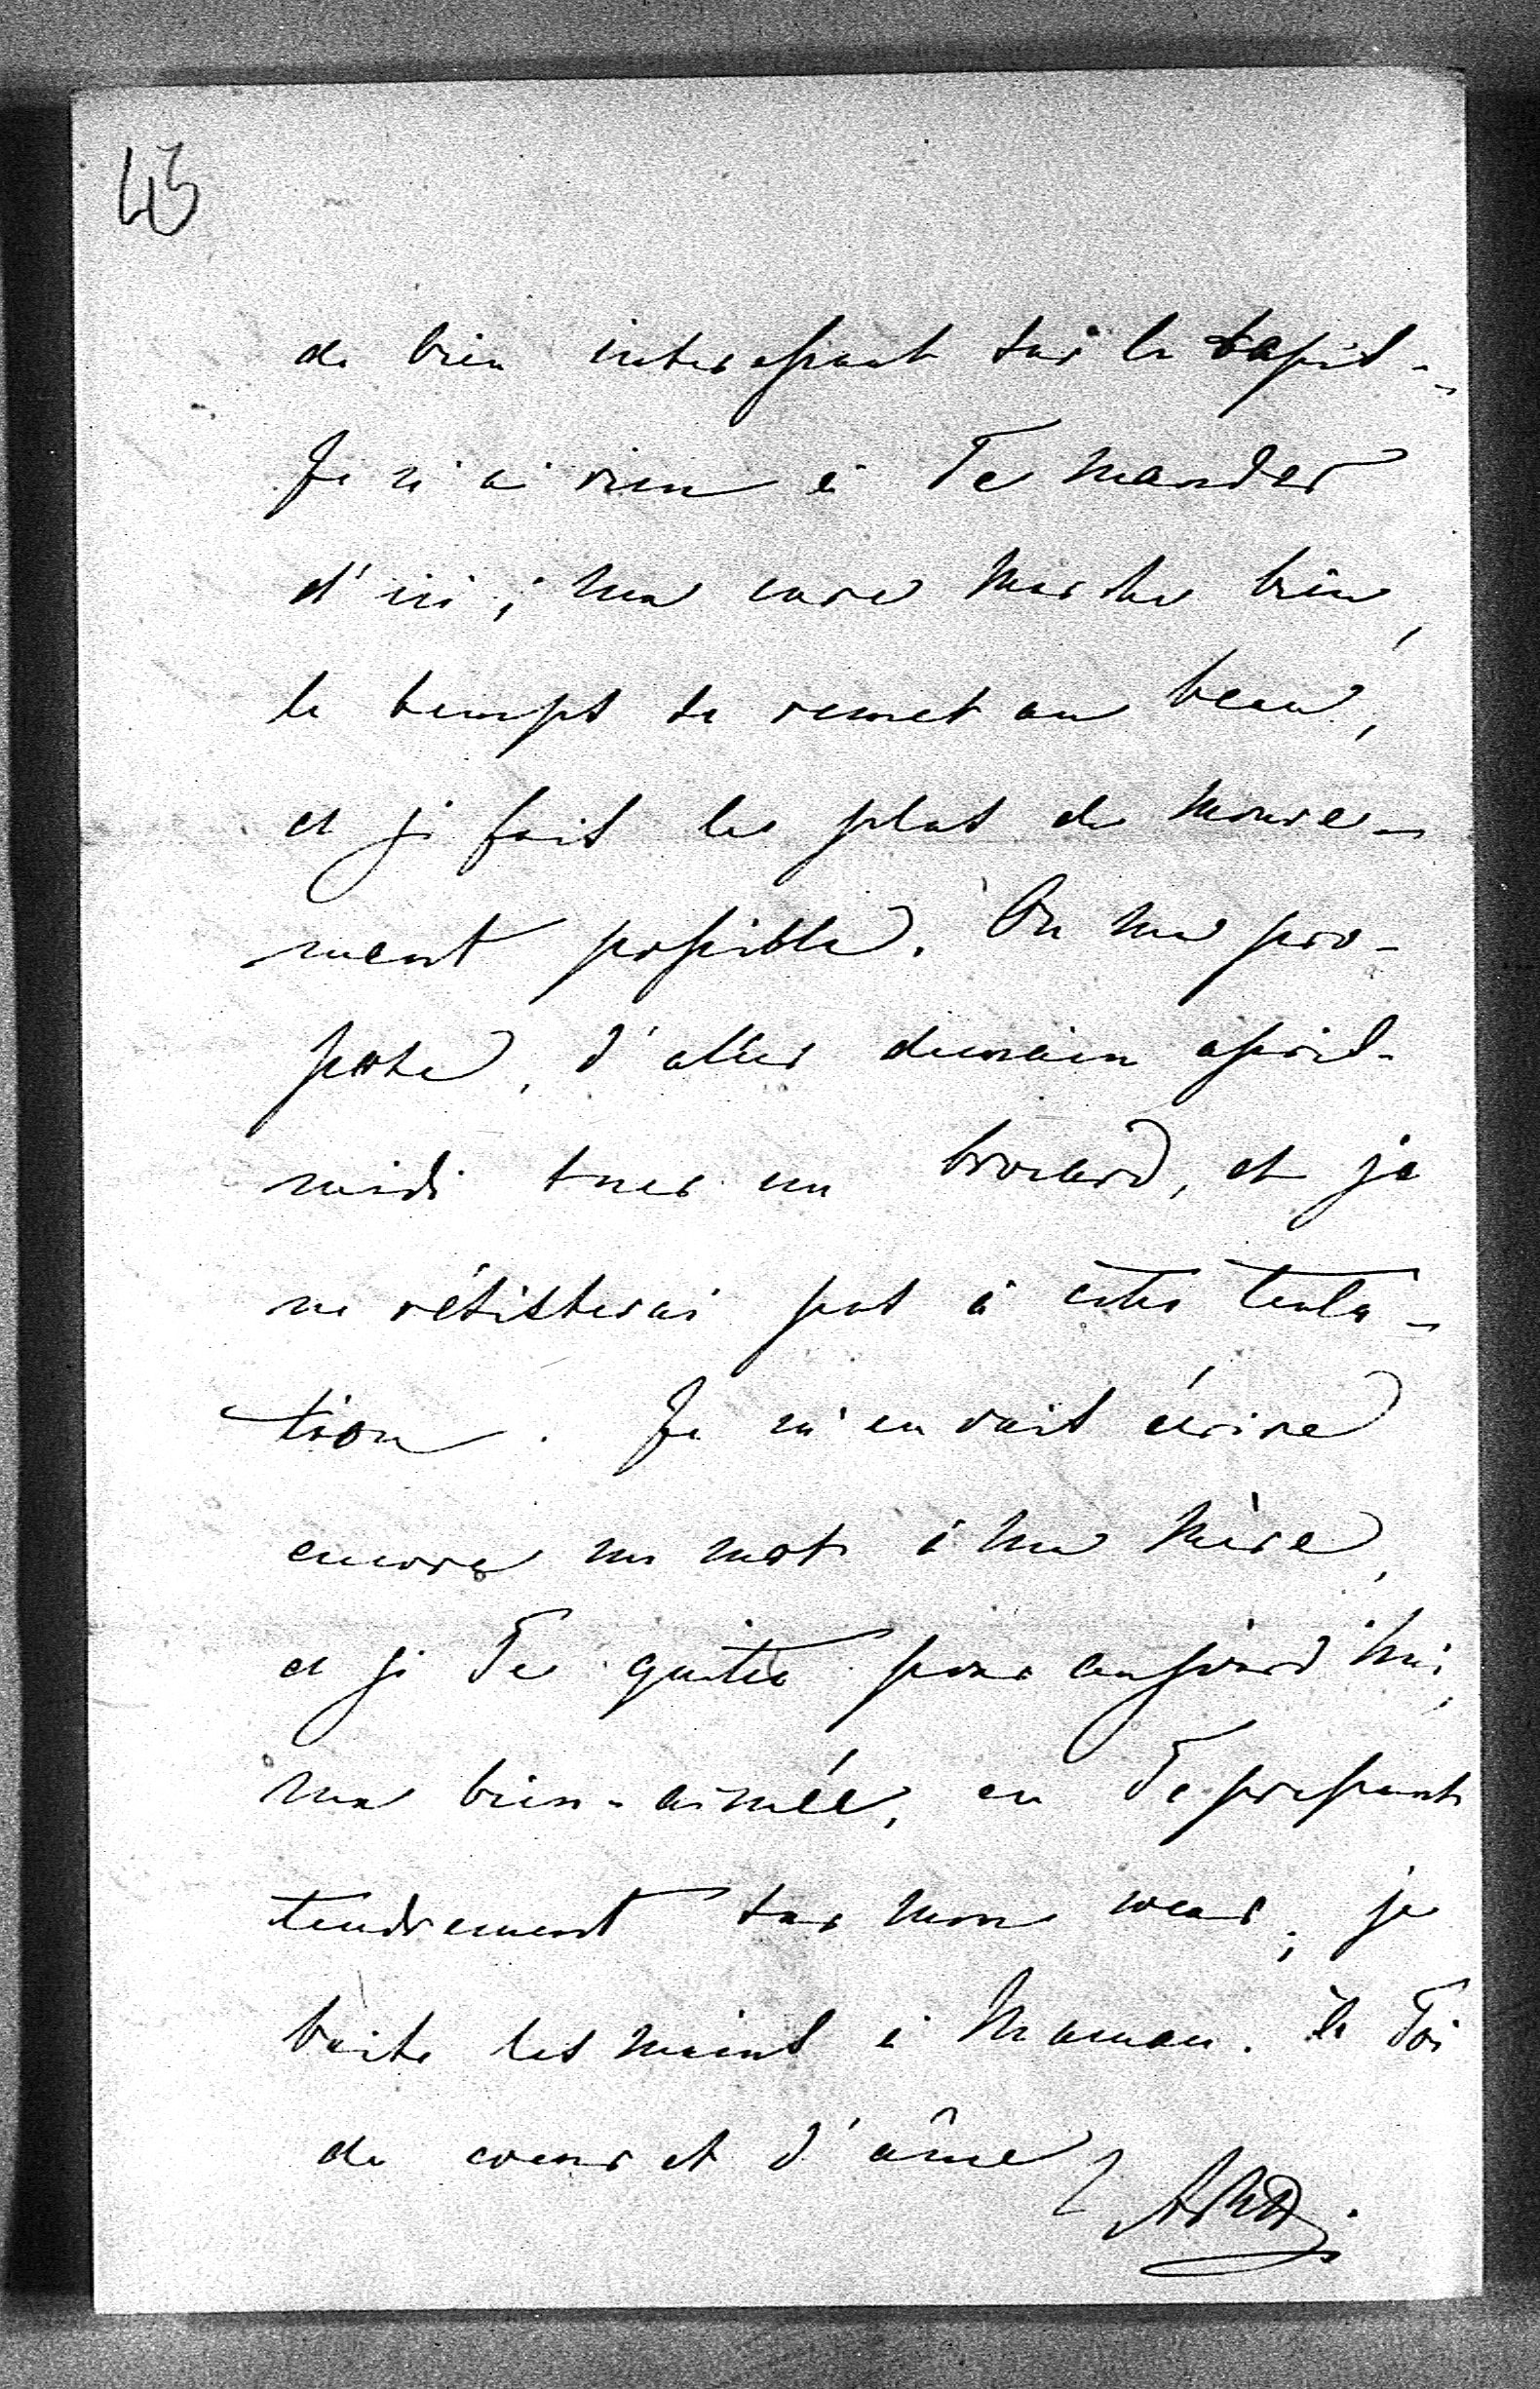 43
de bien interessant sur le tapis. -
Je n'ai rien à Te mander
d'ici; ma cure marche bien,
le temps se remet au beau,
et je fais le plus de mouve-
ment possible. On me pro-
pose, d'aller demain après-
midi tuer un brocard, et je
ne résisterai pas à cette tenta-
tion. Je m'en vais écrire
encore un mot à ma mère,
et je Te quitte pour aujourd'hui,
ma bien-aimée, en Te pressant
tendrement sur mon cœur; je
baise les mains à Maman. à Toi
de coeur et d'âme